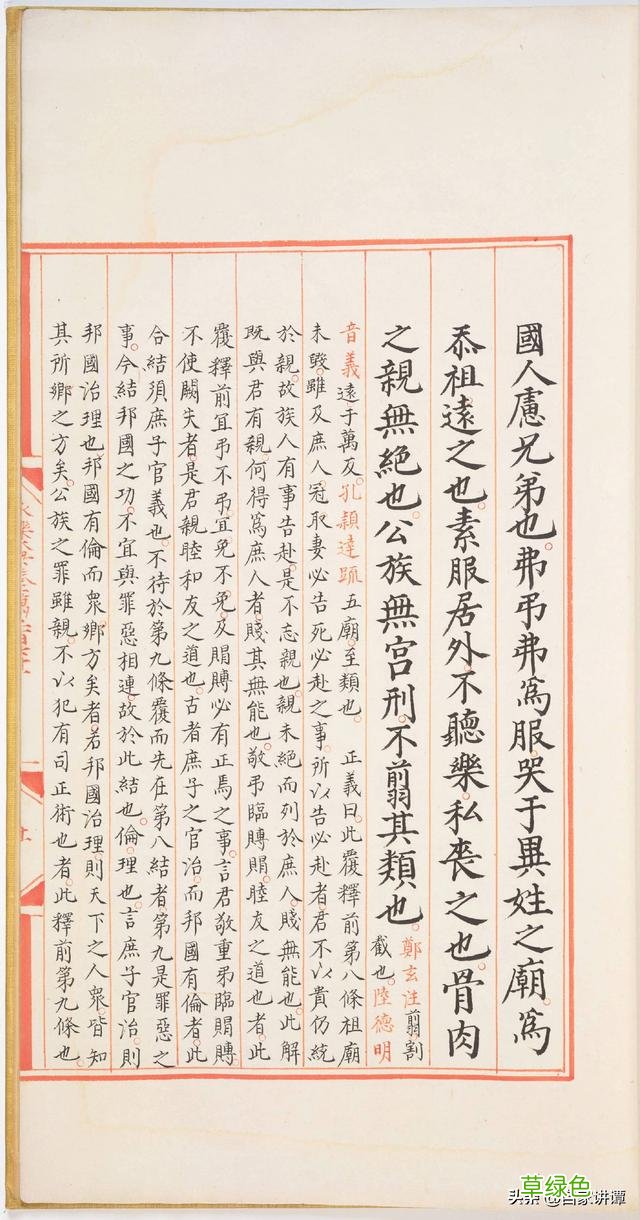 國人慮兄弟也弗弔弗爲服哭于異姓之廟爲
忝祖遠之也素服居外不聽樂私喪之也骨肉
之親無絶也公族無宫刑不翦其類也
鄭玄注翦割
截也陸德明
音義遠于萬反孔穎達疏五廟至類也 正義曰此覆釋前第八條祖廟
未毁雖及庶人冠取妻必告死必赴之事所以告必赴者君不以貴仍統
於親故族人有事告赴是不忘親也親未絶而列於庶人賤無能也此解
既與君有親何得爲庶人者賤其無能也敬弔臨賻賵睦友之道也者此
覆釋前宜弔不弔宜免不免及賵賻必有正焉之事言君敬重弔臨賵賻
不使闕失者是君親睦和友之道也古者庶子之官治而邦國有倫者此
合結須庶子官義也不待於第九條覆而先在第八結者第九是罪惡之
事今結邦國之功不宜與罪惡相連故於此結也倫理也言庶子官治則
邦國治理也邦國有倫而衆鄉方矣者若邦國治理則天下之人衆皆知
其所鄉之方矣公族之罪雖親不以犯有司正術也者此釋前第九條也
草绿色
头条 @百家讲谭